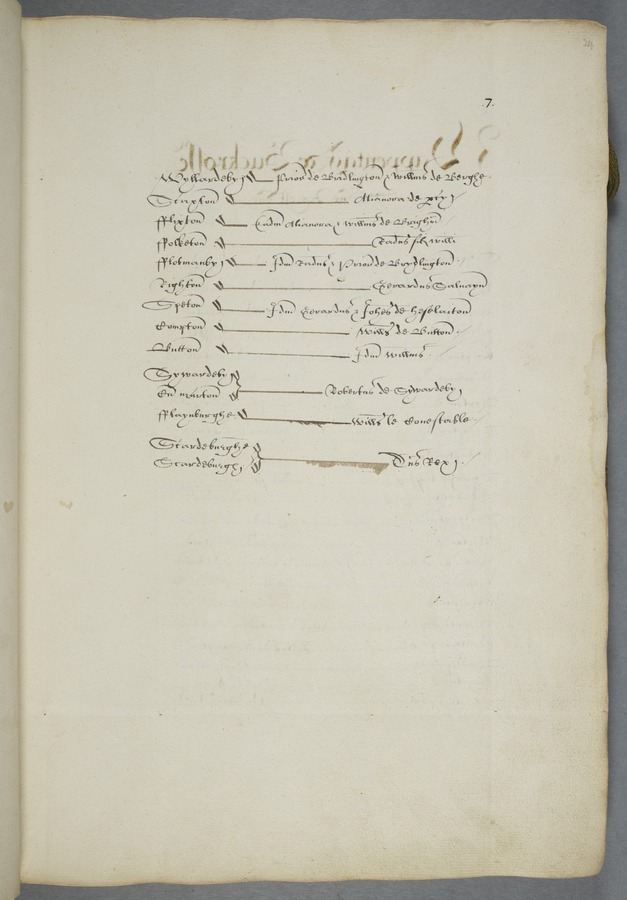 24
.7.
Wyllardeby Prior de Bridlington & Willms de Berghe
Staxton Alianora de pcy
fflixton Eadm Alianora & Willms de Brighm
ffolketon Radus fil Willi
fflotmanby Idm Radus & Prior de Brydlington
Righton Gerardus Salvayn
Speton Idm Gerardus & Johes de Heslarton
Compton Willms de Button
Button Idm Willms
Sywardeby
Cu marton Robertus de Sywardeby
fflaynburghe Willms le Conestable
Scardeburghe
Scardeburgh Dns Rex